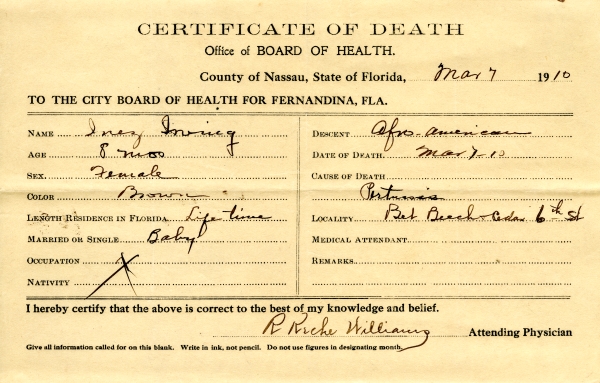 CERTIFICATE OF DEATH
Office of BOARD OF HEALTH.
County of Nassau, State of Florida, Mar 7 1910
TO THE CITY BOARD OF HEALTH FOR FERNANDINA, FLA.
NAME Inez Irving
AGE 8 mos
SEX Female
COLOR Brown
LENGTH RESIDENCE IN FLORIDA Life time
MARRIED OR SINGLE Baby
OCCUPATION
NATIVITY
DESCENT Afro-american
DATE OF DEATH Mar 7-10
CAUSE OF DEATH
Pertussis
LOCALITY Bet Beech & Cedar 6th St
MEDICAL ATTENDANT
REMARKS
I hereby certify that the above is correct to the best of my knowledge and belief.
R Riche Williams Attending Physician
Give all information called for on this blank. Write in ink, not pencil. Do not use figures in designating month.